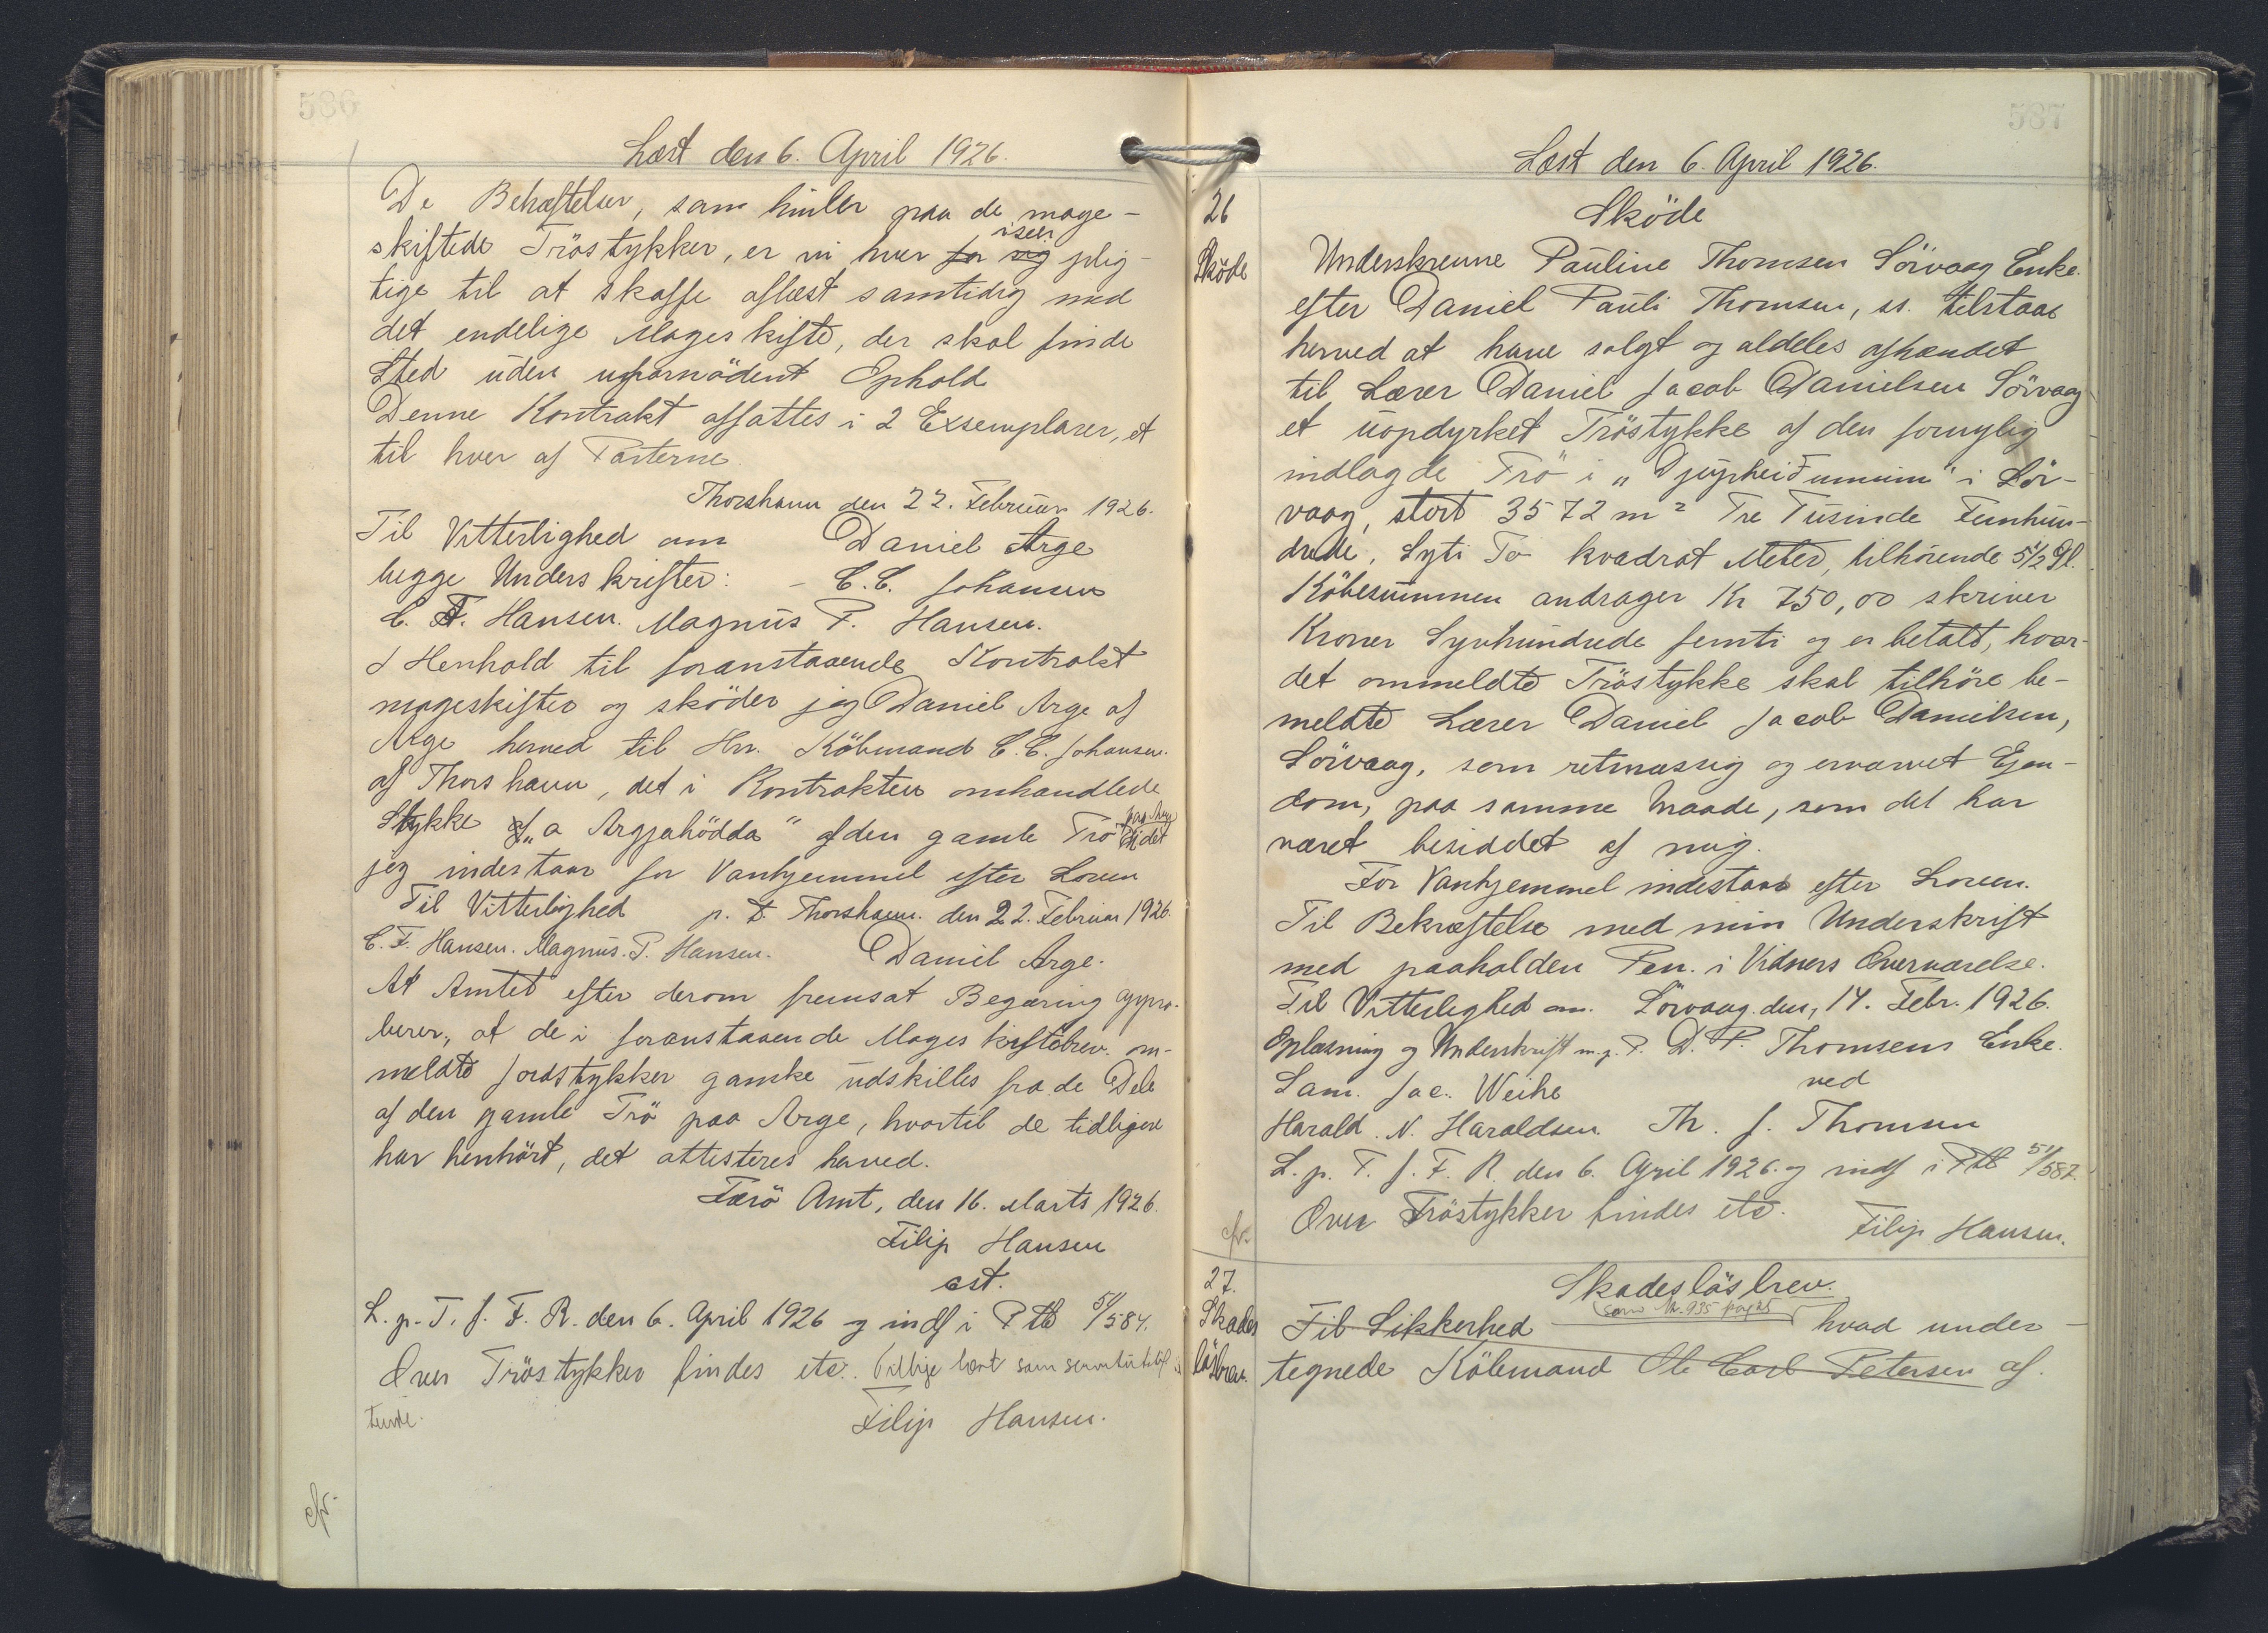 586
Læst den 6. April 1926.
De Behæftelser, som hviler paa de mage-
skiftede Tröstykker, er vi hver for sig iser plig-
tige til at skaffe aflæst samtidig med
det endelige Mageskifte, der skal finde
Sted uden ufornödent Ophold
Denne Kontrakt affattes i 2 Exsemplarer, et
til hver af Parterne
Thorshavn den 22. Februar 1926.
Til Vitterlighed om Daniel Arge
begge Underskrifter: - C.C. Johansen
C. F. Hansen. Magnus P. Hansen.
I Henhold til foranstaaende Kontrakt
mageskifter og sköder jeg Daniel Arge af
Arge herved til Hr. Köbmand C.C. Johansen.
af Thorshavn, det i Kontrakten omhandlede
Stykke af „a Argjahödda" af den gamle Trö det
jeg indestaar for Vanhjemmel efter Loven
Til Vitterlighed p. t. Thorshavn. den 22. Februar 1926.
C. F. Hansen. Magnus. P. Hansen. Daniel Arge.
At Amtet efter derom fremsat Begæring appro-
berer, at de i foranstaaende Mageskiftebrev. om-
meldte Jordstykker ganske udskilles fra de Dele
af den gamle Trö paa Arge, hvortil de tidligere
har henhört, det attesteres herved.
Færö Amt, den 16. Marts 1926.
Filip Hansen
cst.
L. p. T. f. F. R. den 6. April 1926 og indf i Ptb 51/584.
Over Tröstykker findes etc. læst som
Filip Hansen.
cfr.
587
Læst den 6. April 1926.
26
Sköde
Sköde
Underskrevne Pauline Thomsen Sörvaag Enke.
efter Daniel Pauli Thomsen, ss. tilstaar
herved at have solgt og aldeles afhændet
til Lærer Daniel Jacob Danielsen Sörvaag
et uopdyrket Tröstykke af den fornylig
indlagde Trö i „Djúpheiðunum" i Sör-
vaag, stort 3572 m² Tre Tusinde Femhun-
drede, Syti To kvadrat Meter, tilhörende 5½ Gl.
Köbesummen andrager Kr 750,00 skriver
Kroner Syvhundrede femti og er betalt, hvor-
det ommeldte Tröstykke skal tilhöre be-
meldte Lærer Daniel Jacob Danielsen,
Sörvaag, som retmæssig og erværvet Ejen-
dom, paa samme Maade, som det har
været besiddet af mig.
For Vanhjemmel indestaas efter Loven.
Til Bekræftelse med min Underskrift
med paaholden Pen. i Vidners Overværelse.
Til Vitterlighed om. Sörvaag. den, 14. Febr. 1926.
Oplæsning og Underskrift m. p. P. D. P. Thomsens Enke.
Sam. Jac. Weihe ved
Harald. N. Haraldsen Th. J. Thomsen
L. p. T. f. F. R. den 6. April 1926. og indf i Ptb 51/587.
Over Tröstykker findes etc. Filip Hansen.
cfr.
27.
Skades
lösbrev.
Skadeslösbrev.
som Nr. 935 pag 25
Til Sikkerhed hvad under-
tegnede Köbmand Ole Carl Petersen af.